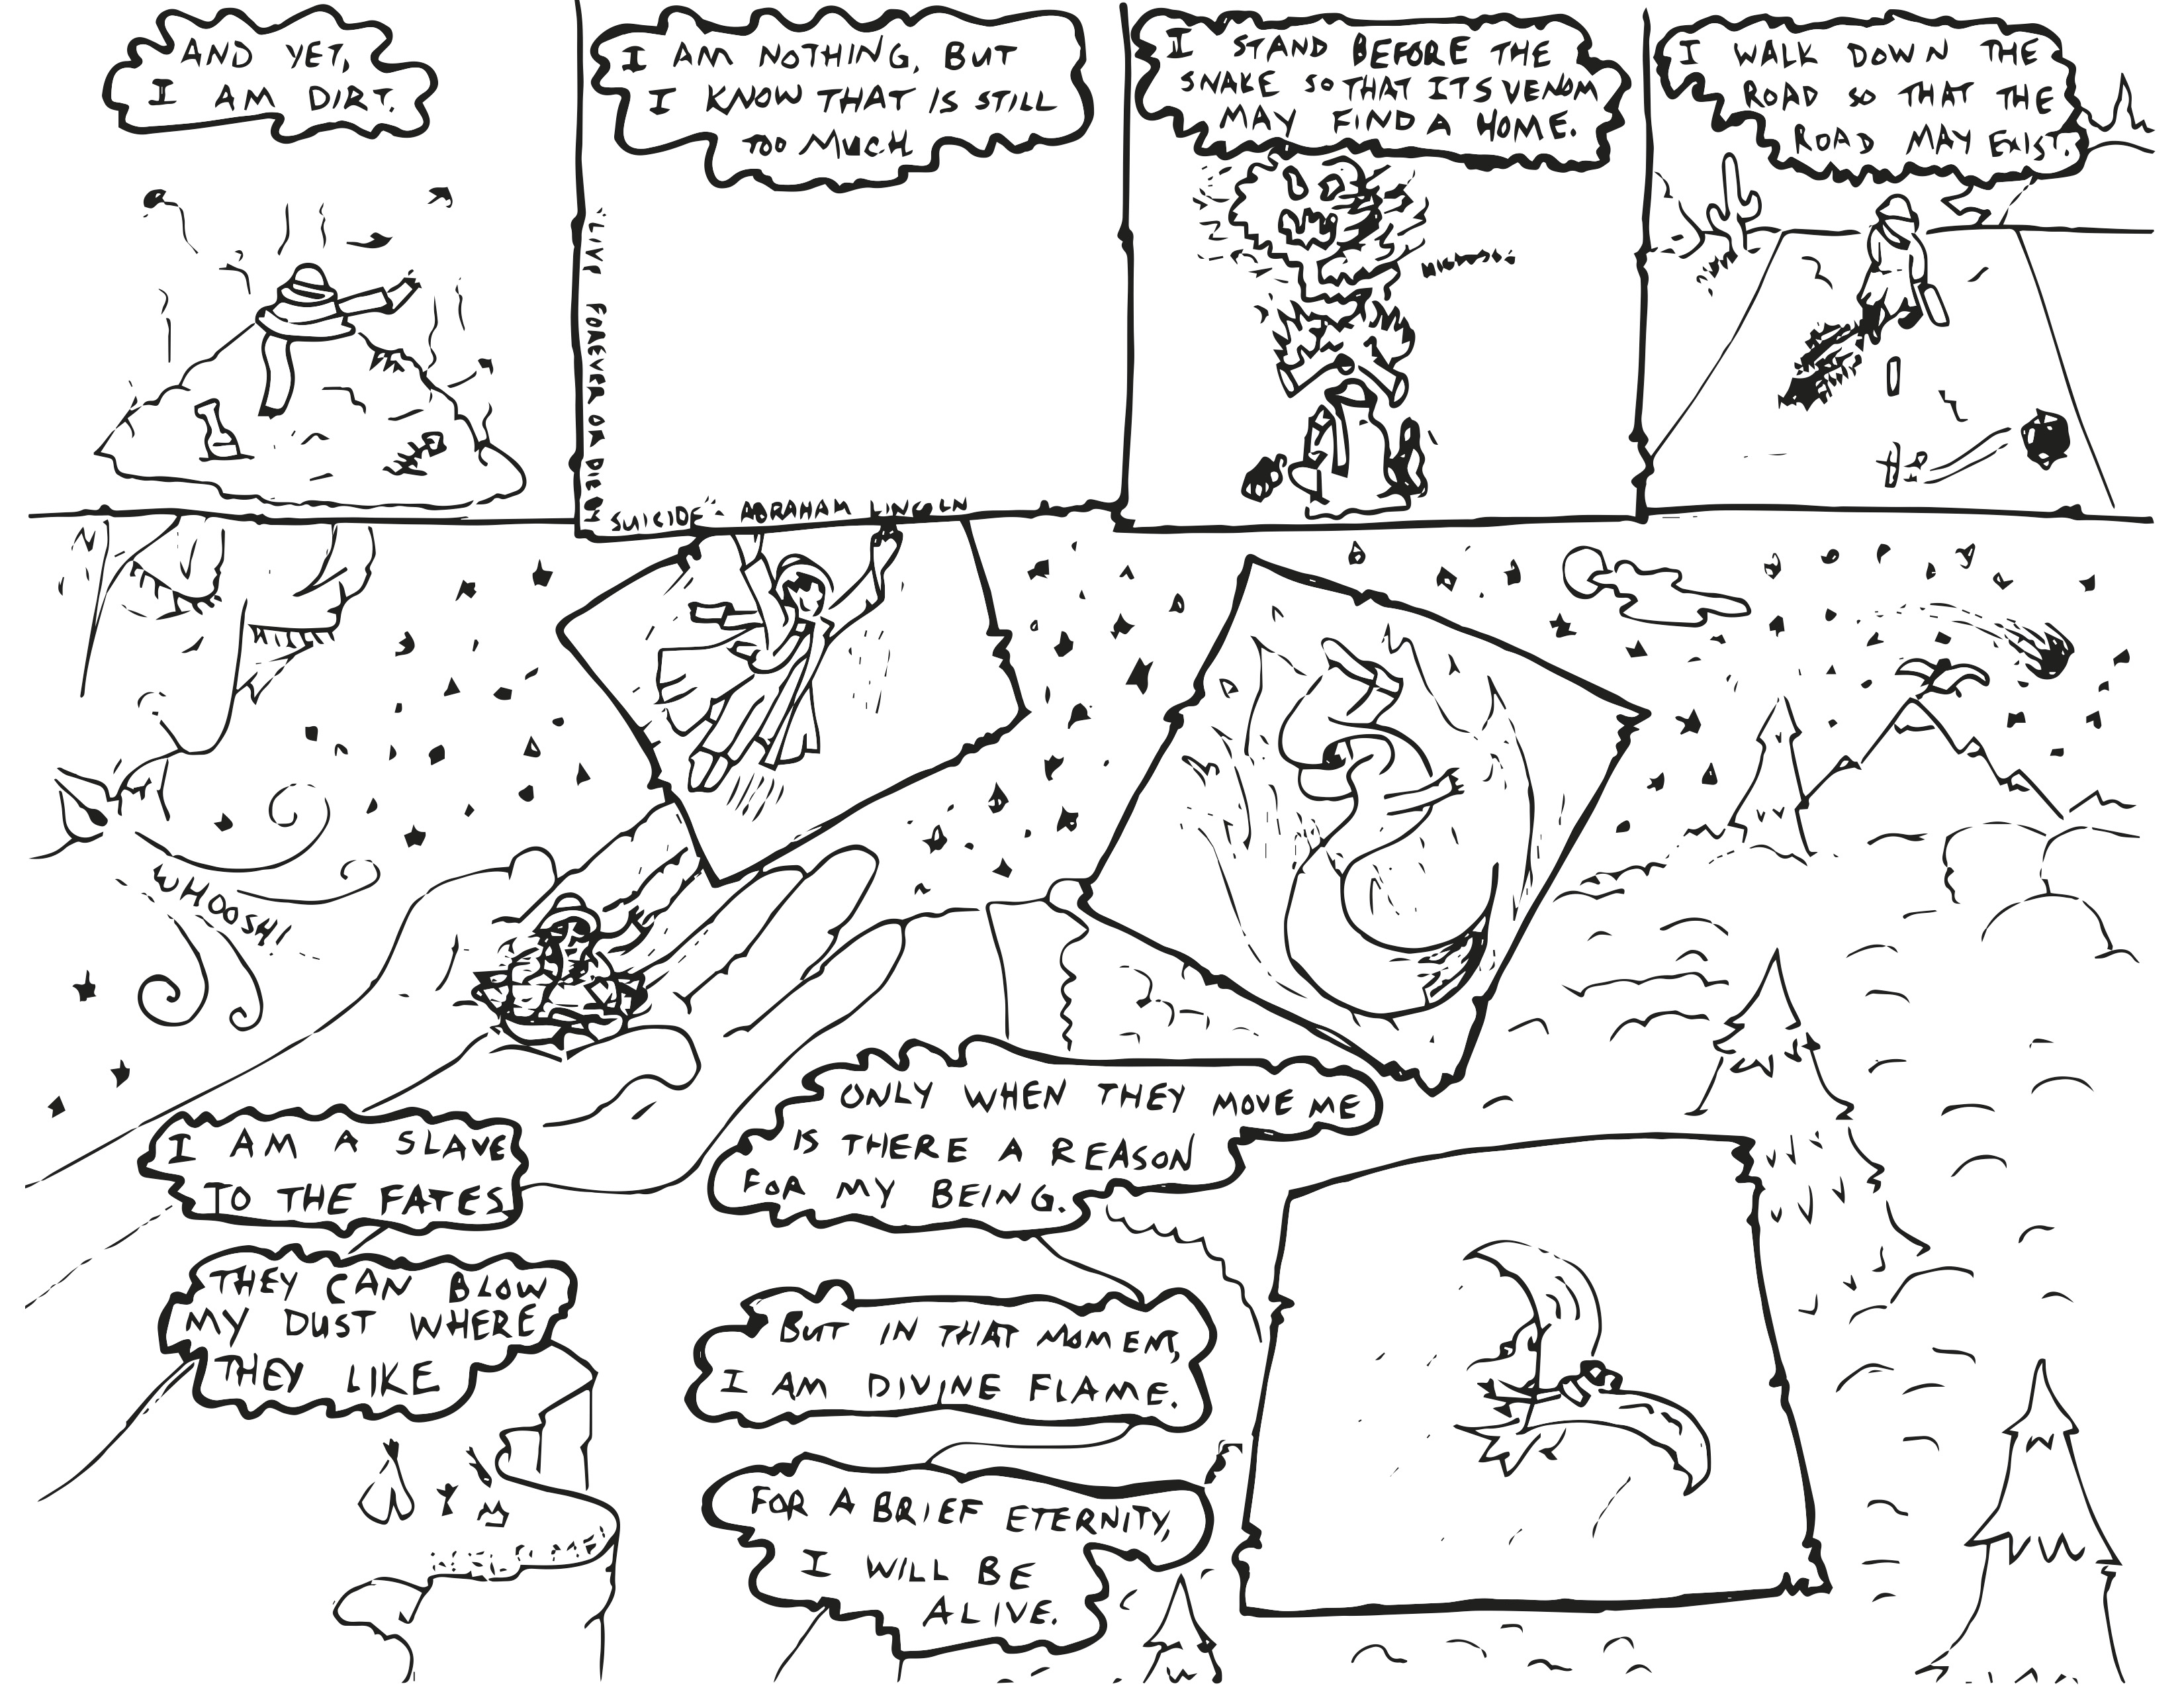 AND YET,
I AM DIRT.
I AM NOTHING, BUT
I KNOW THAT IS STILL
TOO MUCH
LIVE FOREVER OR DIE BY
SUICIDE - ABRAHAM LINCOLN
I STAND BEFORE THE
SNAKE SO THAT ITS VENOM
MAY FIND A HOME.
I WALK DOWN THE
ROAD SO THAT THE
ROAD MAY EXIST.
WHOOSH!
I AM A SLAVE
TO THE FATES
THEY CAN BLOW
MY DUST WHERE
THEY LIKE
ONLY WHEN THEY MOVE ME
IS THERE A REASON
FOR MY BEING.
BUT IN THAT MOMENT,
I AM DIVINE FLAME.
FOR A BRIEF ETERNITY,
I WILL BE
ALIVE.